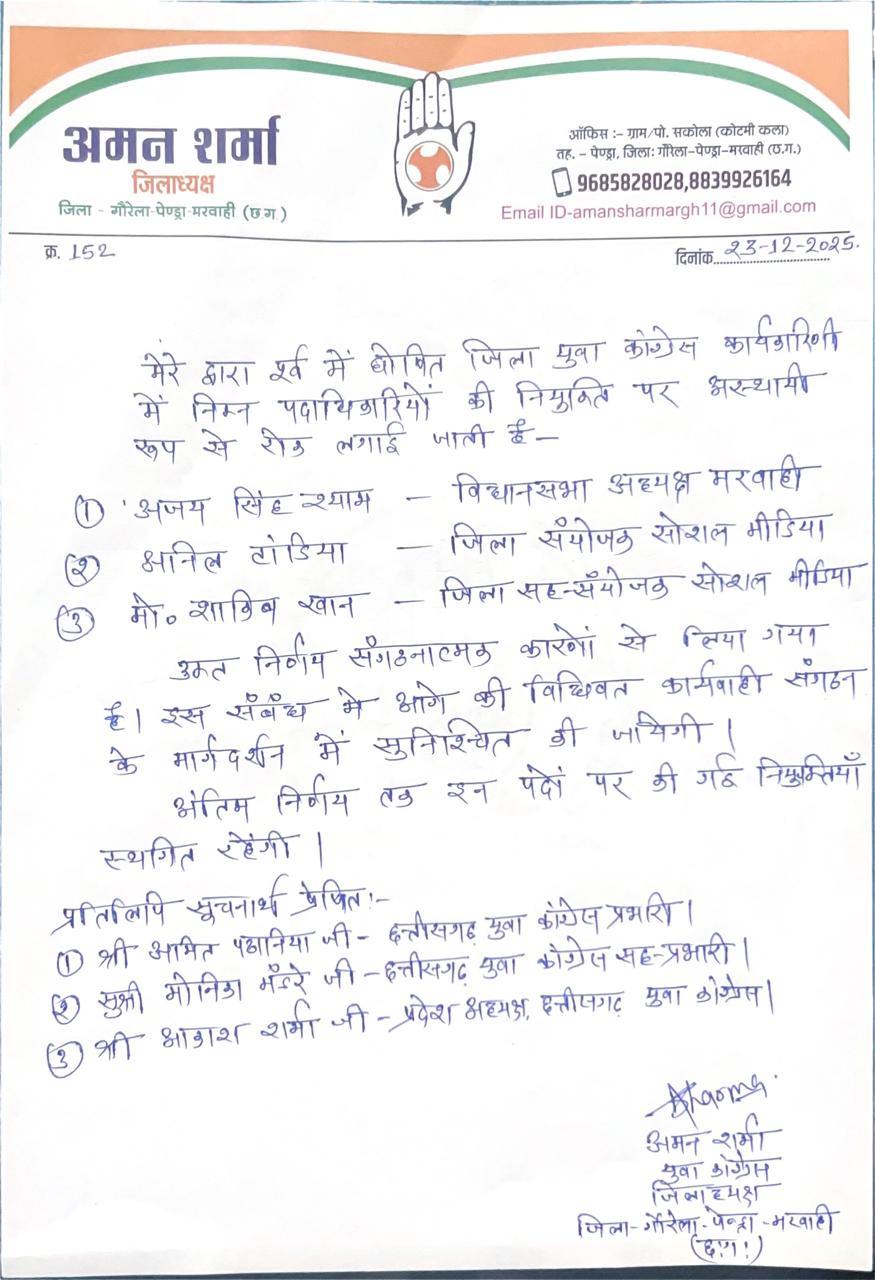 अमन शर्मा
जिलाध्यक्ष
जिला - गौरेला-पेण्ड्रा-मरवाही (छ.ग.)
ऑफिस :- ग्राम/पो. सकोला (कोटमी कला)
तह. - पेण्ड्रा, जिला: गौरेला-पेण्ड्रा-मरवाही (छ.ग.)
9685828028,8839926164
Email ID-amansharmargh11@gmail.com
क्र. 152
दिनांक 23-12-2025.
मेरे द्वारा पूर्व में घोषित जिला युवा कांग्रेस कार्यकारिणी
में निम्न पदाधिकारियों की नियुक्ति पर अस्थायी
रूप से रोक लगाई जाती है-
① अजय सिंह श्याम - विधानसभा अध्यक्ष मरवाही
② अनिल टांडिया - जिला संयोजक सोशल मीडिया
③ मो० शाकिब खान - जिला सह-संयोजक सोशल मीडिया
उक्त निर्णय संगठनात्मक कारणों से लिया गया
है। इस संबंध मे आगे की विधिवत कार्यवाही संगठन
के मार्गदर्शन में सुनिश्चित की जायेगी।
अंतिम निर्णय तक इन पदों पर की गई नियुक्तियाँ
स्थगित रहेंगी।
प्रतिलिपि सूचनार्थ प्रेषित:-
① श्री अमित पठानिया जी - छत्तीसगढ़ युवा कांग्रेस प्रभारी।
② सुश्री मोनिका मंडरे जी - छत्तीसगढ़ युवा कांग्रेस सह-प्रभारी।
③ श्री आकाश शर्मा जी - प्रदेश अध्यक्ष, छत्तीसगढ़ युवा कांग्रेस।
Asharma
अमन शर्मा
युवा कांग्रेस
जिलाध्यक्ष
जिला-गौरेला-पेन्ड्रा-मरवाही
(छ.ग.)